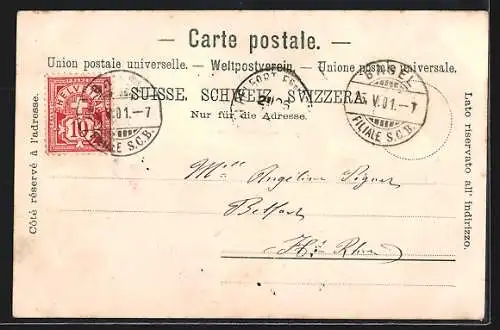 — Carte postale. —
Union postale universelle. — Weltpostverein. — Unione postale universale.
SUISSE. SCHWEIZ. SVIZZERA.
Nur für die Adresse.
Côté réservé à l'adresse.
Lato riservato all' indirizzo.
HELVETIA
10
01.-7
FILIALE S.C.B.
BASEL
V.01.-7
FILIALE S.C.B.
Mlle Angeline
Belfort
Ht Rhin